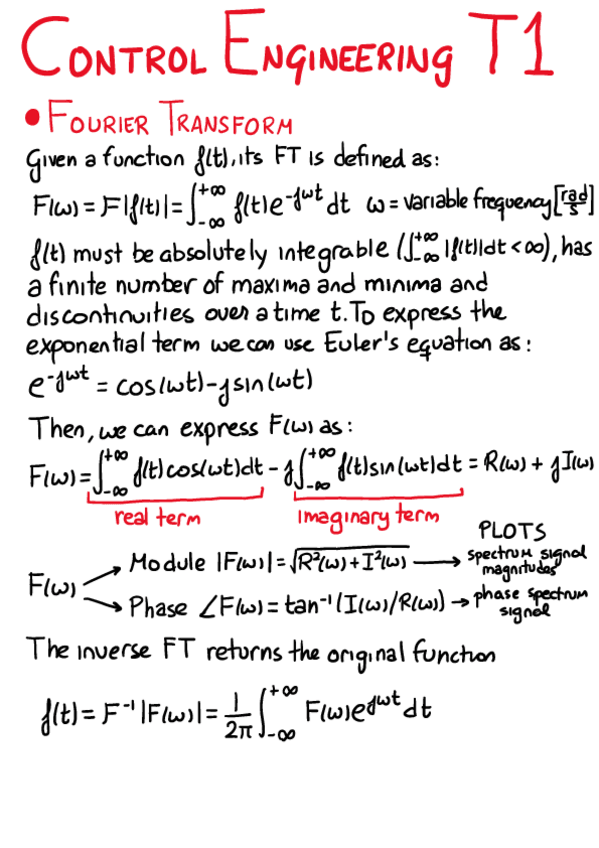 CONTROL ENGINEERING T1
• FOURIER TRANSFORM
Given a function f(t), its FT is defined as:
F(ω) = F|f(t)| = ∫_{-∞}^{+∞} f(t)e^{-jωt} dt ω = variable frequency [rad/s]
f(t) must be absolutely integrable (∫_{-∞}^{+∞} |f(t)|dt < ∞), has
a finite number of maxima and minima and
discontinuities over a time t. To express the
exponential term we can use Euler's equation as:
e^{-jωt} = cos(ωt) - jsin(ωt)
Then, we can express F(ω) as:
F(ω) = ∫_{-∞}^{+∞} f(t)cos(ωt)dt - j∫_{-∞}^{+∞} f(t)sin(ωt)dt = R(ω) + jI(ω)
real term imaginary term
PLOTS
F(ω)
Module |F(ω)| = √(R²(ω) + I²(ω)) → spectrum signal magnitudes
Phase ∠F(ω) = tan⁻¹(I(ω)/R(ω)) → phase spectrum signal
The inverse FT returns the original function
f(t) = F⁻¹|F(ω)| = 1/2π ∫_{-∞}^{+∞} F(ω)e^{jωt} dt